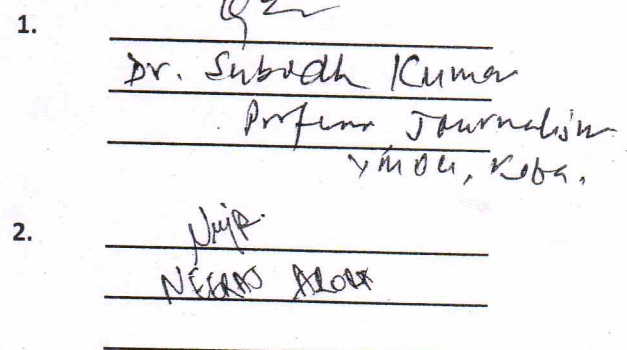 1.
Dr. Subodh Kumar
Professor Journalism
VMOU, Kota.
2.
Neeraj
NEERAJ ARORA